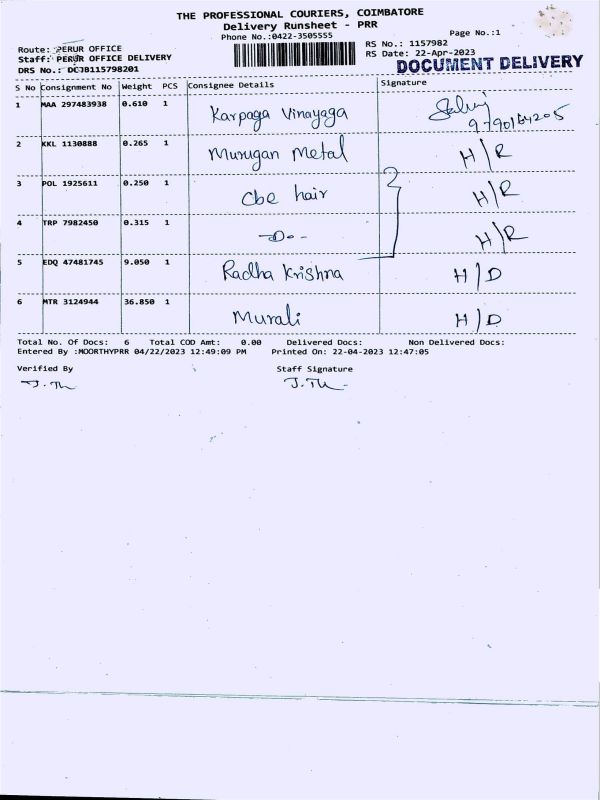 THE PROFESSIONAL COURIERS, COIMBATORE
Delivery Runsheet - PRR
Phone No.:0422-3505555
Page No.:1
Route: PERUR OFFICE
RS No.: 1157982
Staff: PERUR OFFICE DELIVERY
RS Date: 22-Apr-2023
DRS No.: DCJB115798201
DOCUMENT DELIVERY
S No Consignment No Weight PCS Consignee Details Signature
1 MAA 297483938 0.610 1 Karpaga Vinayaga
2 KKL 1130888 0.265 1 Murugan Metal H/R
3 POL 1925611 0.250 1 Cbe hair H/R
4 TRP 7982450 0.315 1 -Do- H/R
5 EDQ 47481745 9.050 1 Radha Krishna H/D
6 MTR 3124944 36.850 1 Murali H/D
Total No. Of Docs: 6 Total COD Amt: 0.00 Delivered Docs: Non Delivered Docs:
Entered By :MOORTHYPRR 04/22/2023 12:49:09 PM Printed On: 22-04-2023 12:47:05
Verified By Staff Signature